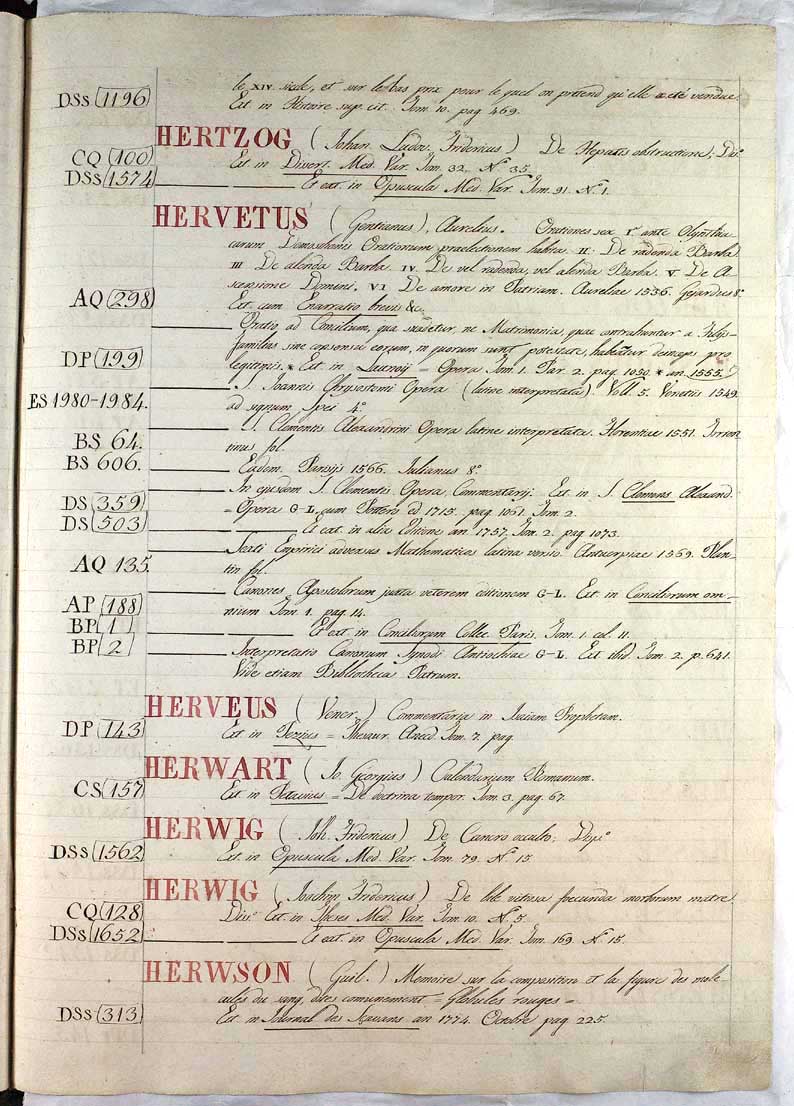 le XIV. siecle, et sur le bas prix pour le quel on prétend qu'elle a été vendue.
DSs 1196 Est in Histoire sup. cit. Tom. 10. pag. 469.
HERTZOG (Johan. Ludov. Fridericus) De Hepatis obstructione; Diss.
CQ 100 Est in Divert. Med. Var. Tom. 32. N. 35.
DSs 1574 Et ext. in Opuscula Med. Var. Tom. 91. N. 1.
HERVETUS (Gentianus), Aurelius. Orationes sex I. ante Olynthia-
carum Demosthenis Orationum praelectionem habita. II. De radenda Barba.
III. De alenda Barba. IV. De vel radenda, vel alenda Barba. V. De A-
scensione Domini. VI. De amore in Patriam. Aureliae 1536. Gejardus 8.
AQ 298 Ext. cum Enarratio brevis &c.
Oratio ad Concilium, qua suadetur, ne Matrimonia, quae contrahuntur a Filijs-
familias sine consensu eorum, in quorum sunt potestate, habeantur deinceps pro
DP 199 legitimis. * Est in Launoij = Opera Tom. 1. Par. 2. pag. 1050. * an. 1555.
S. Joannis Chrysostomi Opera (latine interpretata). Voll. 5. Venetiis 1549.
ES 1980-1984. ad signum Spei 4.°
S. Clementis Alexandrini Opera latine interpretata. Florentiae 1551. Torren-
BS 64. tinus fol.
BS 606. Eadem. Parisijs 1566. Julianus 8.°
In ejusdem S. Clementis Opera, Commentarij. Ext. in S. Clemens Alexand.
DS 359 = Opera G-L. cum Pottero ed 1715. pag. 1061. Tom. 2.
DS 503 Et ext. in alia Editione an. 1757. Tom. 2. pag. 1073.
Sexti Empirici adversus Mathematicos latina versio. Antuerpiae 1569. Plan-
AQ 135. tin fol.
Canones Apostolorum juxta veterem editionem G-L. Ext. in Conciliorum om-
AP 188 nium Tom. 1. pag. 14.
BP 1 Et ext. in Conciliorum Collec. Paris. Tom. 1. col. 11.
BP 2 Interpretatio Canonum Synodi Antiochiae G-L. Ext. ibid. Tom. 2. p. 641.
Vide etiam Bibliotheca Patrum.
HERVEUS (Vener.) Commentaria in Isaiam Prophetam.
DP 143 Est in Pezius = Thesaur. Anecd. Tom. 7. pag
HERWART (Jo. Georgius) Calendarium Romanum.
CS 157 Est. in Petavius = De doctrina tempor. Tom. 3. pag. 67.
HERWIG (Joh. Fridericus) De Cancro occulto; Diss.°
DSs 1562 Est. in Opuscula Med. Var. Tom. 79. N. 15
HERWIG (Joachim Fridericus) De bile vitiosa foecunda morborum matre
CQ 128 Diss.° Est. in Theses Med. Var. Tom. 10. N. 5.
DSs 1652 Et ext. in Opuscula Med. Var. Tom. 169. N. 15.
HERWSON (Guil.) Memoire sur la composition et la figure des mole-
cules du sang, dites comunement = Globules rouges =
DSs 313 Est in Journal des Scavans an 1774. Octobre pag. 225.